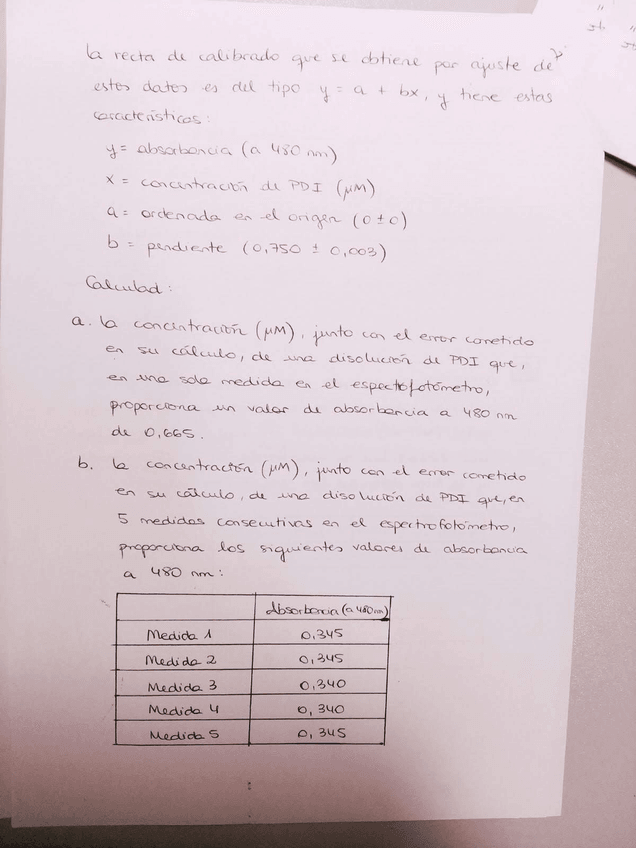 La recta de calibrado que se obtiene por ajuste de
estos datos es del tipo y = a + bx, y tiene estas
características:
y = absorbancia (a 480 nm)
x = concentración de PDI (μM)
a = ordenada en el origen (0 ± 0)
b = pendiente (0,750 ± 0,003)
Calculad:
a. La concentración (μM), junto con el error cometido
en su cálculo, de una disolución de PDI que,
en una sola medida en el espectofotómetro,
proporciona un valor de absorbancia a 480 nm
de 0,665.
b. la concentración (μM), junto con el error cometido
en su cálculo, de una disolución de PDI que, en
5 medidas consecutivas en el espectrofotómetro,
proporciona los siguientes valores de absorbancia
a 480 nm:
Absorbancia (a 480nm)
Medida 1 0,345
Medida 2 0,345
Medida 3 0,340
Medida 4 0,340
Medida 5 0,345